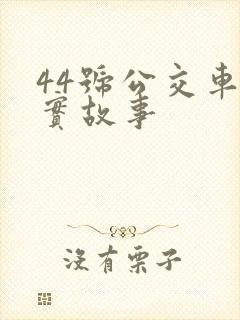 44號公交車
實故事
沒有栗子